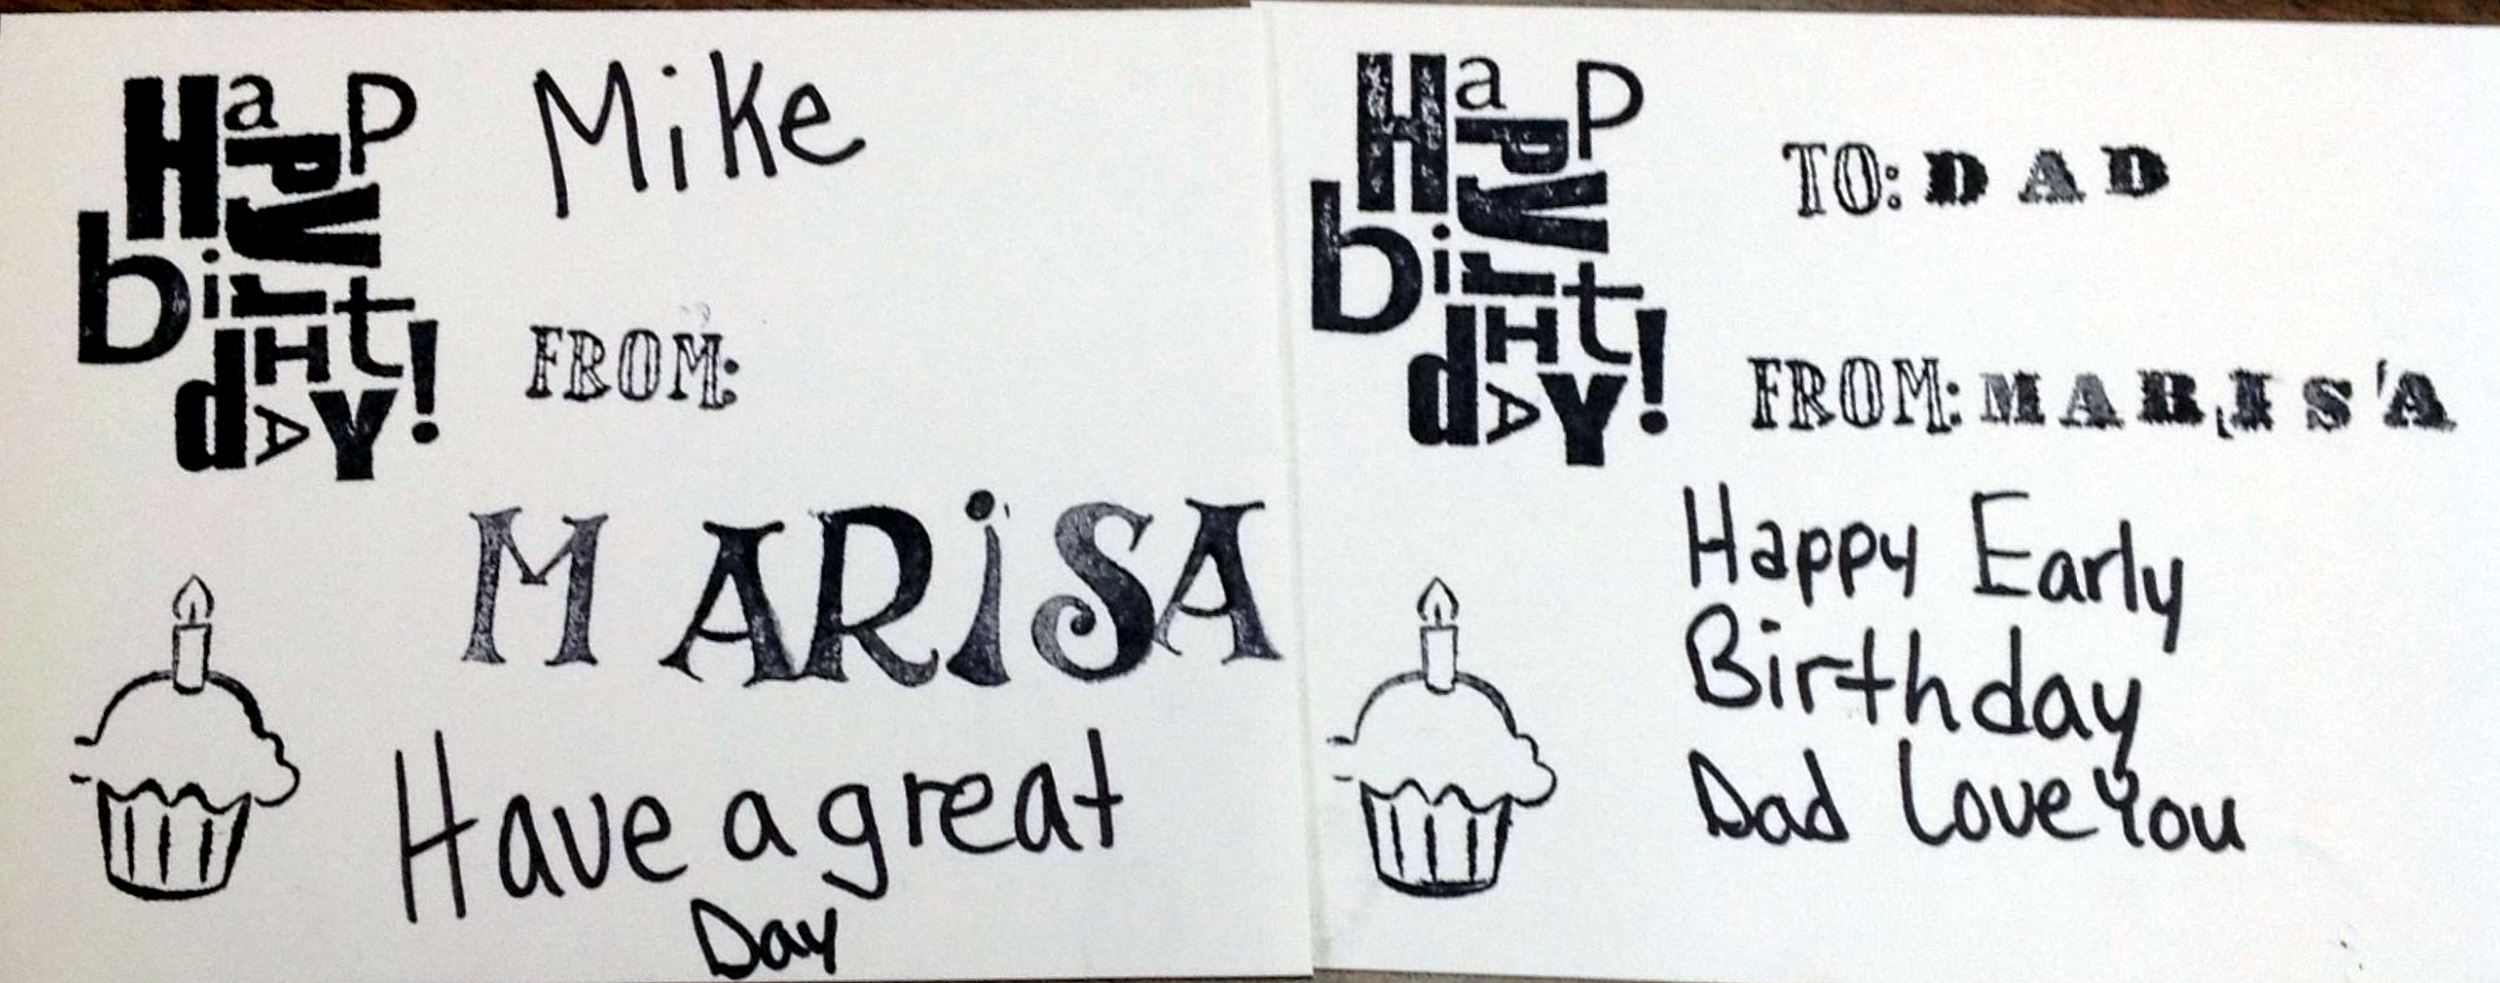 Happy
birtHdAY!
Mike
FROM:
MARiSA
Have a great
Day
Happy
birtHdAY!
TO: DAD
FROM: MARISA
Happy Early
Birthday
Dad Love You